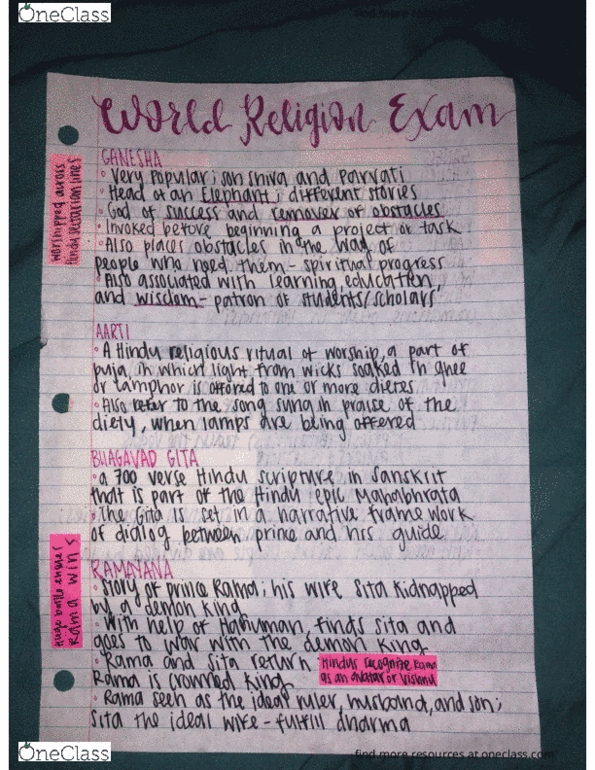 OneClass
find more
World Religion Exam
GANESHA
• Very popular; son shiva and Parvati
• Head of an Elephant; different stories
• God of success and remover of obstacles
• Invoked before beginning a project or task
• Also places obstacles in the way of
people who need them - spiritual progress
• Also associated with learning, education,
and wisdom - patron of students/scholars
worshipped across
Hindu sectarian lines
AARTI
• A Hindu religious ritual of worship, a part of
puja, in which light from wicks soaked in ghee
or camphor is offered to one or more dieties
• Also refer to the song sung in praise of the
diety, when lamps are being offered
BHAGAVAD GITA
• a 700 verse Hindu scripture in Sanskrit
that is part of the Hindu epic Mahabhrata
• The Gita is set in a narrative frame work
of dialog between prince and his guide
RAMAYANA
• Story of prince Rama; his wife Sita kidnapped
by a demon king
• With help of Hanuman, finds Sita and
goes to war with the demon king
Huge battle ensues
Rama wins
• Rama and Sita return
Rama is crowned king
Hindus recognize Rama
as an avatar of Vishnu
• Rama seen as the ideal ruler, husband, and son;
Sita the ideal wife - fulfill dharma
OneClass
find more resources at oneclass.com